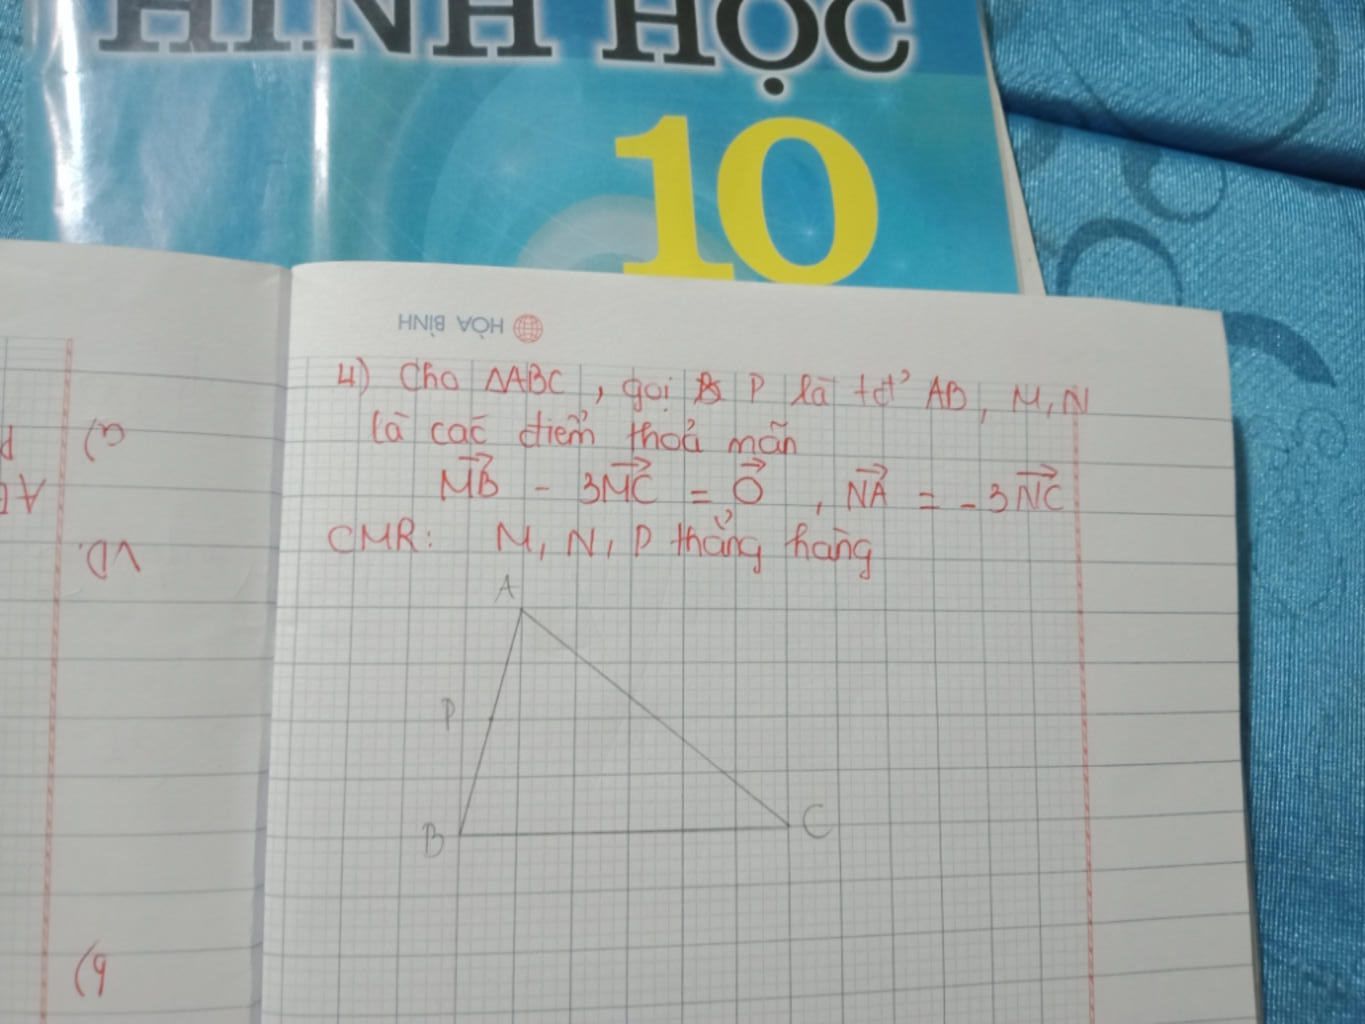 HÌNH HỌC
10
HÒA BÌNH
4) Cho ΔABC, gọi P là tđ' AB, M, N
là các điểm thoả mãn
MB⃗ - 3MC⃗ = 0⃗, NA⃗ = -3NC⃗
CMR: M, N, P thẳng hàng
A
P
B
C
a)
VD.
b)